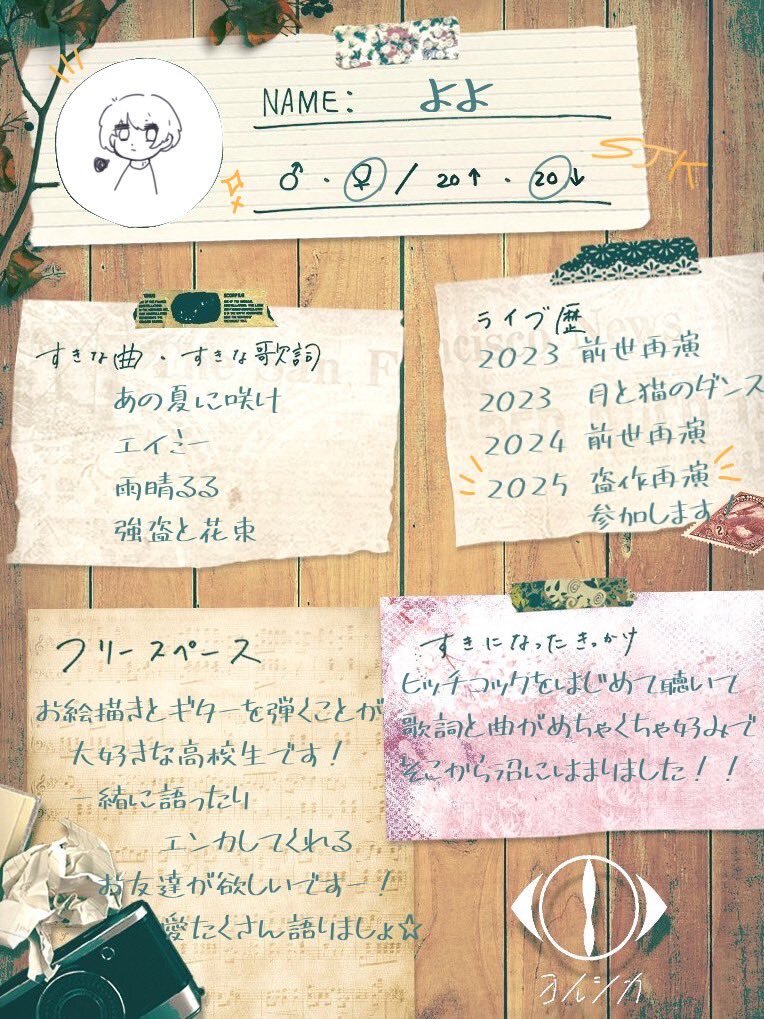 NAME: よよ
♂・♀/20↑・20↓
SJK
すきな曲・すきな歌詞
あの夏に咲け
エイミー
雨晴るる
強盗と花束
ライブ歴
2023 前世再演
2023 月と猫のダンス
2024 前世再演
2025 盗作再演
参加します!
フリースペース
お絵描きとギターを弾くことが
大好きな高校生です!
一緒に語ったり
エンカしてくれる
お友達が欲しいですー!
愛たくさん語りましょ☆
すきになったきっかけ
ヒッチコックをはじめて聴いて
歌詞と曲がめちゃくちゃ好みで
そこから沼にはまりました!!
ヨルシカ